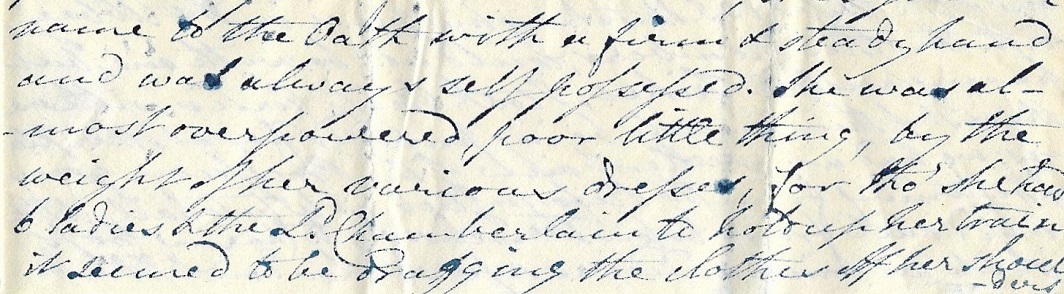 name to the Oath with a firm & steady hand
and was always self possessed. She was al-
-most overpowered, poor little thing, by the
weight of her various dresses, for tho' she had
6 ladies & the Ld. Chamberlain to hold up her train
it seemed to be dragging the clothes off her shoul
-ders